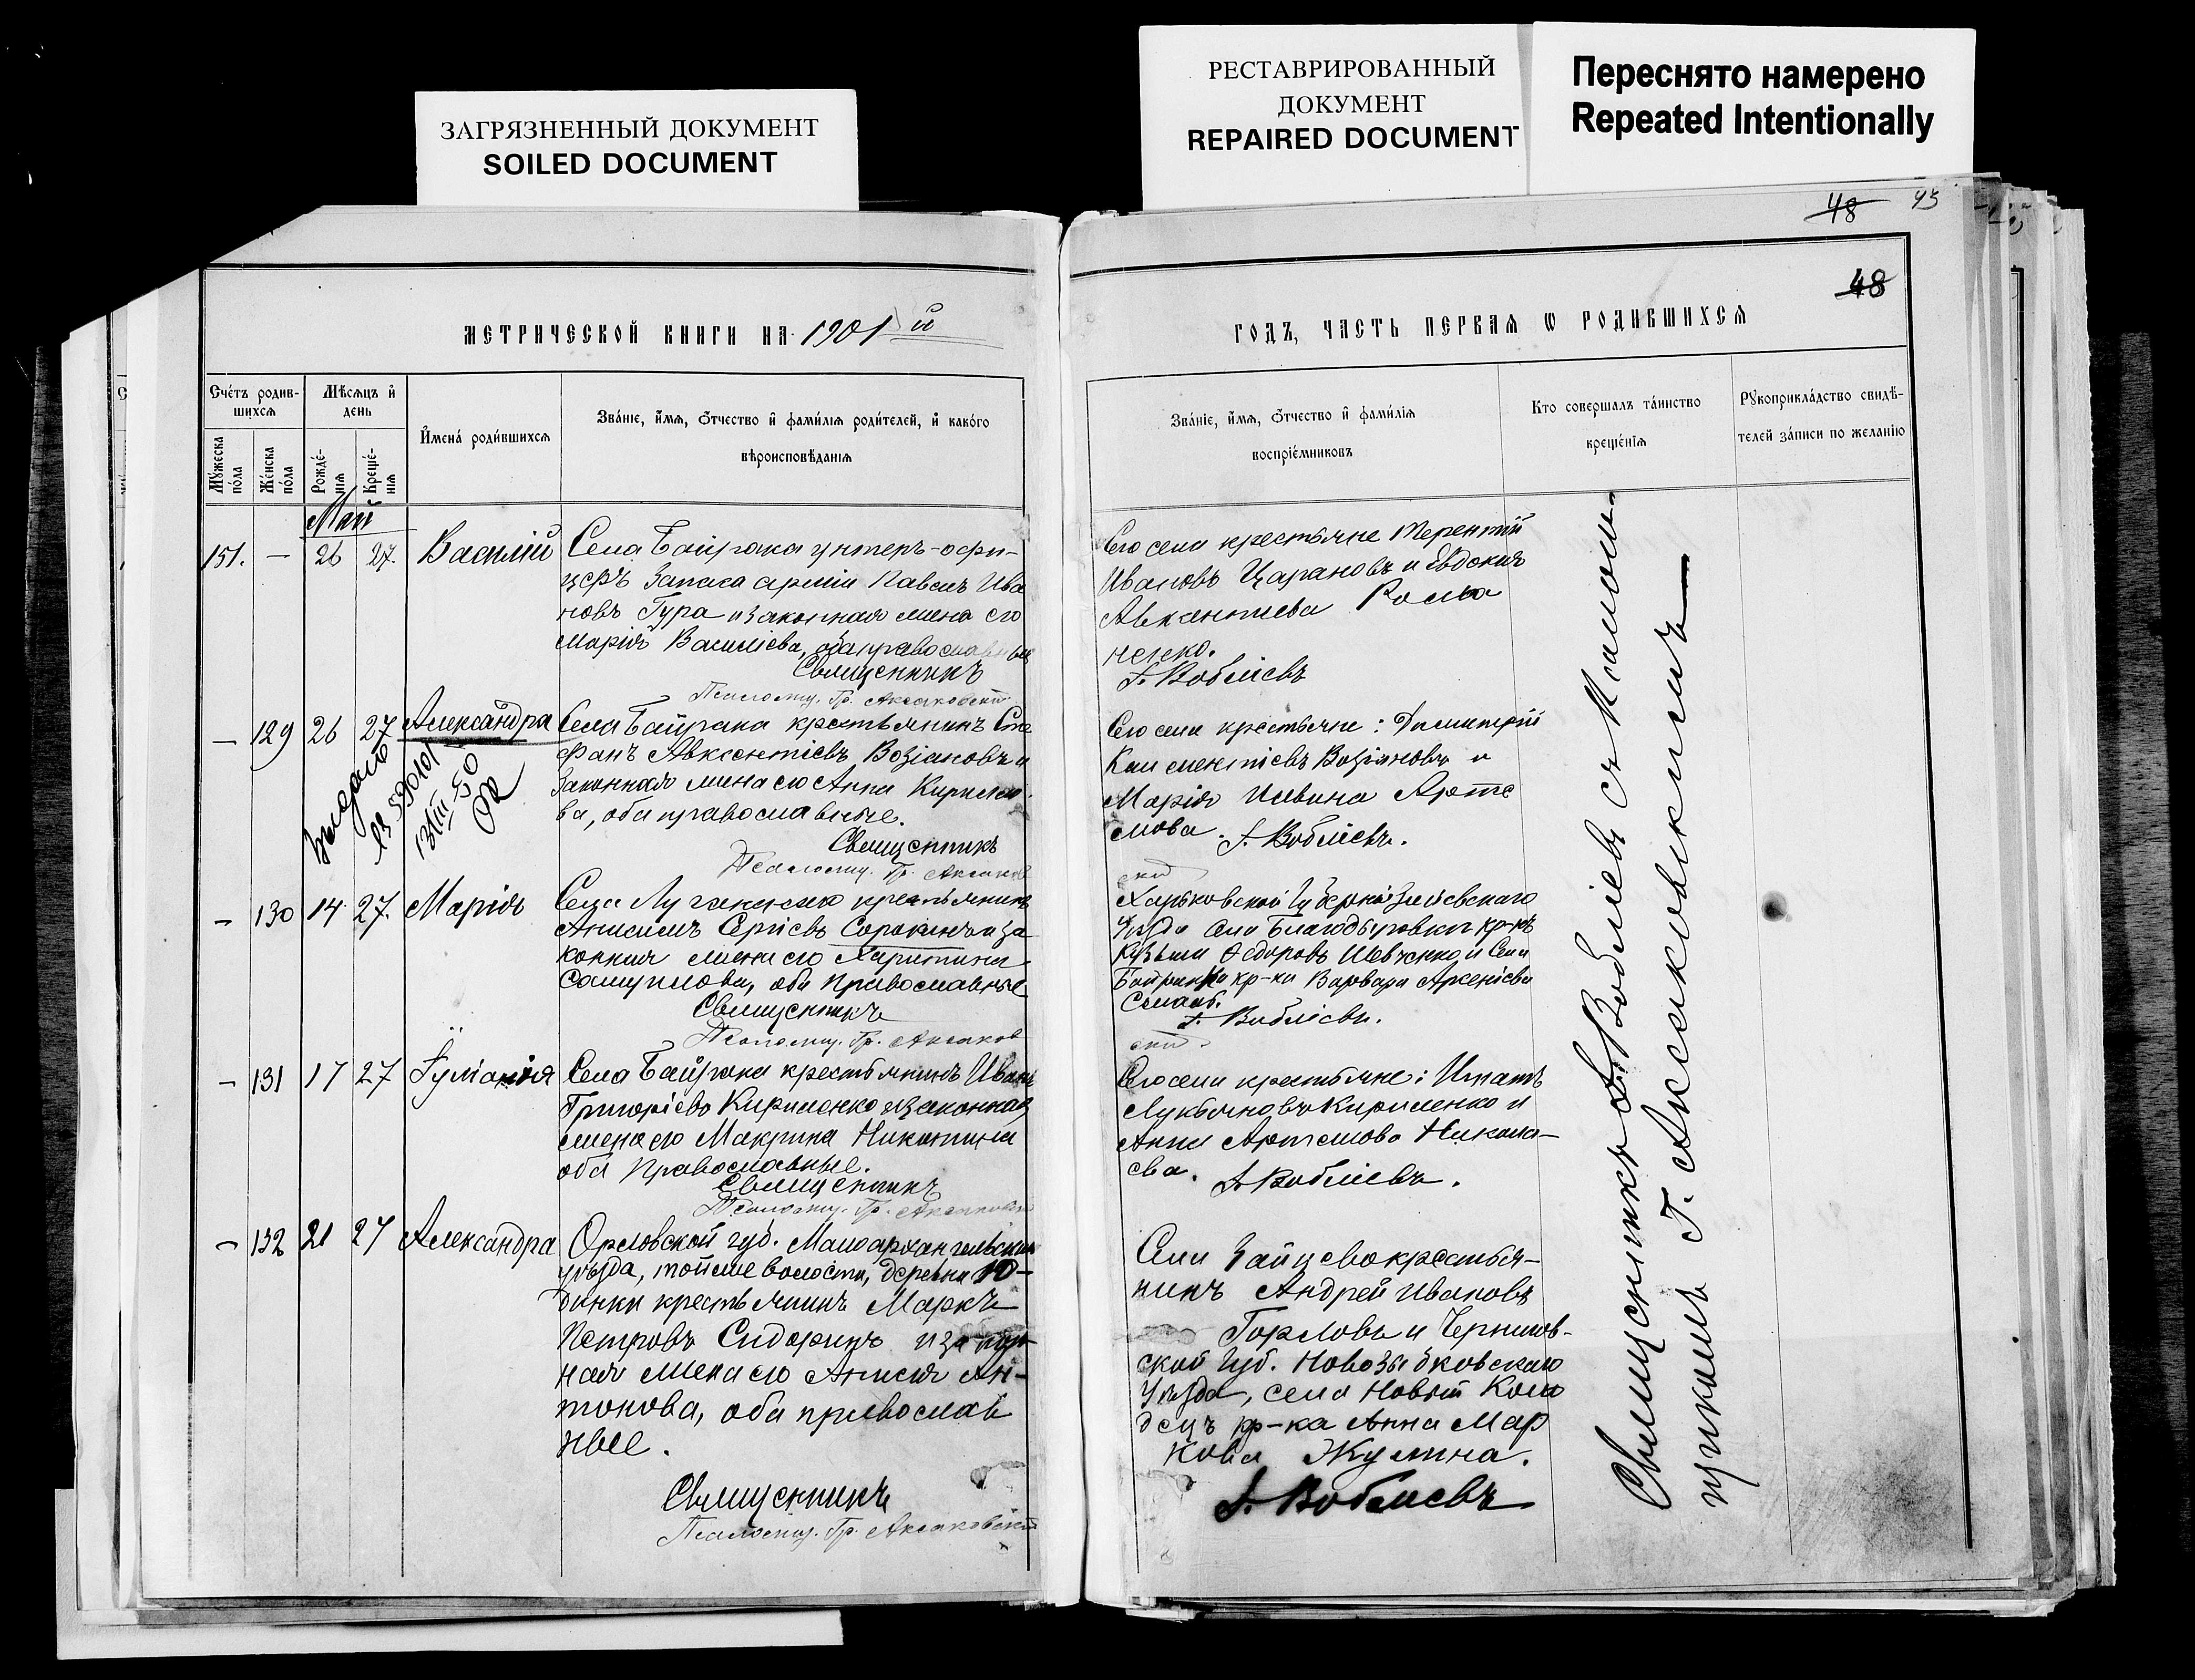 ЗАГРЯЗНЕННЫЙ ДОКУМЕНТ
SOILED DOCUMENT
РЕСТАВРИРОВАННЫЙ
ДОКУМЕНТ
REPAIRED DOCUMENT
Переснято намерено
Repeated Intentionally
48
48
МЕТРИЧЕСКОЙ КНИГИ НА 1901 й
ГОДЪ, ЧАСТЬ ПЕРВАѦ Ѡ РОДИВШИХСѦ
Счéтъ родив-
шихсѧ
Мѣсѧцъ и҆
день
Мꙋ́жеска
по́ла
Же́нска
по́ла
Рожде́-
нїѧ
Креще́-
нїѧ
И҆мена́ роди́вшихсѧ
Зва́нїе, и҆́мѧ, ѻ҆́тчество и҆ фами́лїѧ роди́телей, и҆ како́гѡ
вѣроисповѣ́данїѧ
Зва́нїе, и҆́мѧ, ѻ҆́тчество и҆ фами́лїѧ
воспрїе́мниковъ
Кто совершалъ та́инство
креще́нїѧ
Рꙋкоприкла́дство свидѣ́-
телей за́писи по жела́нїю
Май
151. — 26 27. Василій
Села Байрака унтеръ-офи-
церъ запаса арміи Павелъ Ива
новъ Гура и законная жена его
Марія Василіева, оба православные
Священникъ
Псаломщ. Гр. Аксаковскій
Того села крестьяне Терентій
Ивановъ Царановъ и Евдокія
Авксентиева Рома
ненко.
І. Воблiевъ
— 129 26 27 Александра
Села Байрака крестьянинъ Сте
фанъ Авксентіевъ Возіановъ и
законная жена его Анна Кирило
ва, оба православные.
Священникъ
Псаломщ. Гр. Аксаков
ский
Того села крестьяне: Димитрій
Климентіевъ Возіяновъ и
Марія Иовина Арте
мова. І. Воблiевъ.
Выдано
13/III-50
— 130 14 27. Марія
Села крестьянинъ
Анисимъ Сергіевъ Сорокинъ и за
конная жена его Харитина
Самуилова, оба православные
Священникъ
Псаломщ. Гр. Аксаков
ский
Харьковской Губерніи Зміевскаго
Уѣзда села Благодатовки кр-нъ
Кузьма Ѳедоровъ Шевченко и Села
Байрака кр-ка Варвара Арсеніева
І. Воблiевъ.
— 131 17 27 Іуліанія
Села Байрака крестьянинъ Иванъ
Григоріевъ Кириленко и законная
жена его Макрина Никитина
оба православные.
Священникъ
Псаломщ. Гр. Аксаковскій
Того села крестьяне: Игнатъ
Лукьяновъ Кириленко и
Анна Артемова Никола-
ева. І. Воблiевъ.
— 132 21 27 Александра
Орловской губ. Малоархангельскаго
уѣзда, той же волости, деревни Ю-
динки крестьянинъ Маркъ
Петровъ Сидоринъ и закон-
ная жена его Анисія Ан-
тонова, оба православ
ные.
Священникъ
Псаломщ. Гр. Аксаковскій
Села Зайцево крестья-
нинъ Андрей Ивановъ
Горловъ и Чернигов-
ской губ. Новозыбковскаго
Уѣзда, села Новый Коло
децъ кр-ка Анна Мар
кова Жулина.
І. Воблiевъ
Священникъ І. Воблiевъ съ Псалом-
щикомъ Г. Аксаковскимъ